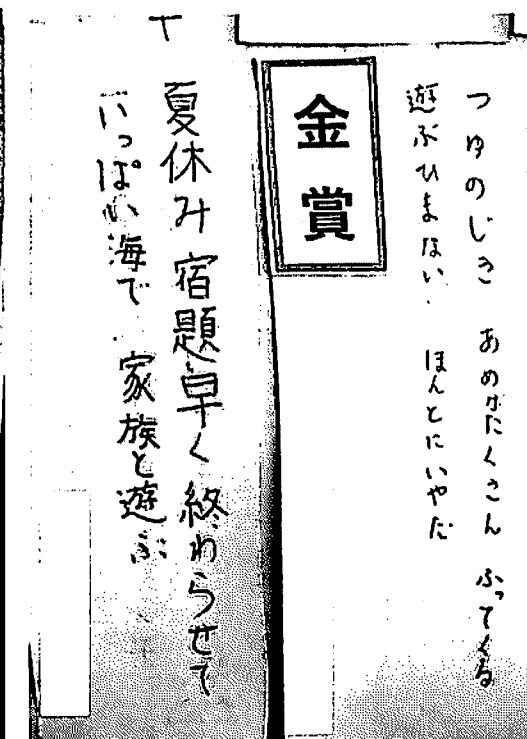 つゆのじき あめがたくさん ふってくる
遊ぶひまない ほんとにいやだ
金賞
夏休み 宿題早く 終わらせて
いっぱい海で 家族と遊ぶ